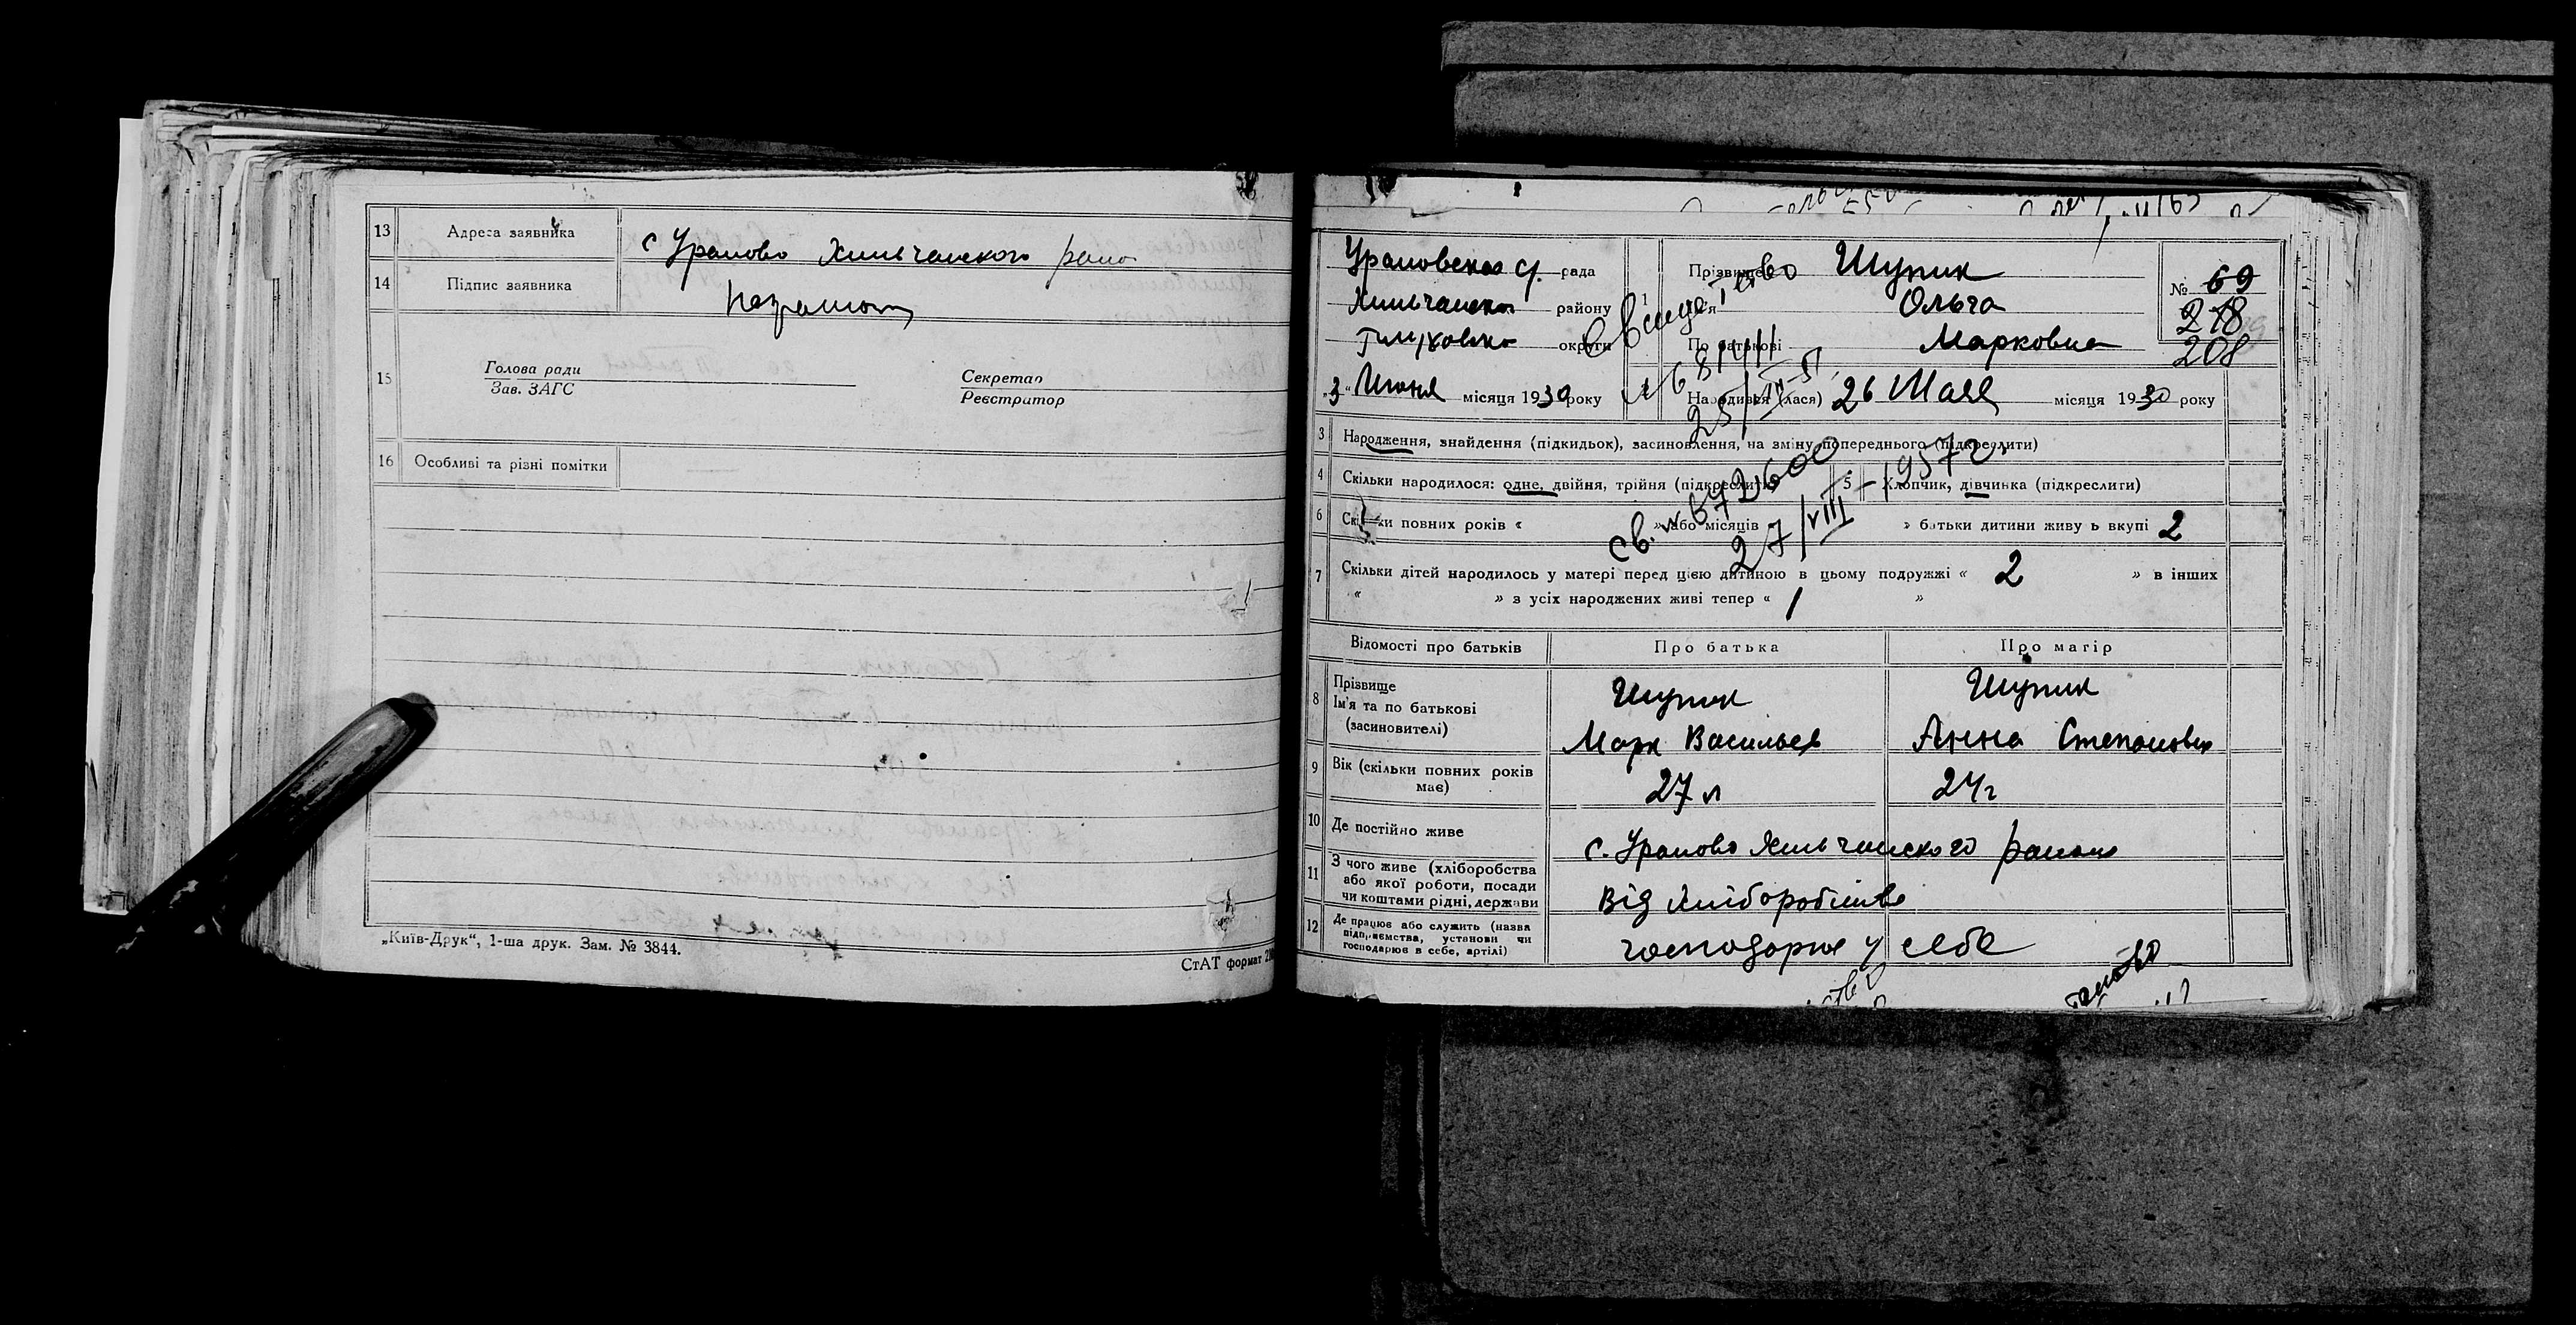 13 Адреса заявника с Уралово Хильчанского райо
14 Підпис заявника Неграмотн
15 Голова ради
Зав. ЗАГС
Секретар
Реєстратор
16 Особливі та різні помітки
„Київ-Друк“, 1-ша друк. Зам. № 3844.
СтАТ формат
Ураловская с/ рада
Хильчанско району
Глуховско округи
„3“ Июня місяця 1930 року
Свидетельство
1 Прізвище Шупик
Ім'я Ольга
По батькові Марковна
№ 69
218
208
2 Народився (лася) 26 Мая місяця 1930 року
3 Народження, знайдення (підкидьок), засиновлення, на зміну попереднього (підкреслити)
4 Скільки народилося: одне, двійня, трійня (підкреслити) 5 Хлопчик, дівчинка (підкреслити)
св. № 672600
27/VIII – 1957 г.
6 Скільки повних років « » або місяців » батьки дитини живуть вкупі 2
7 Скільки дітей народилось у матері перед цією дитиною в цьому подружжі « 2 » в інших
« » з усіх народжених живі тепер « 1 »
Відомості про батьків Про батька Про матір
8 Прізвище
Ім'я та по батькові
(засиновителі)
Шупик Шупик
Марк Васильев Анна Степановн
9 Вік (скільки повних років має) 27 л 24 г
10 Де постійно живе с. Уралово Хильчанского района
11 З чого живе (хліборобства
або якої роботи, посади
чи коштами рідні, держави
Від хліборобства
12 Де працює або служить (назва
підприємства, установи чи
господарює в себе, артілі)
господарює у себе